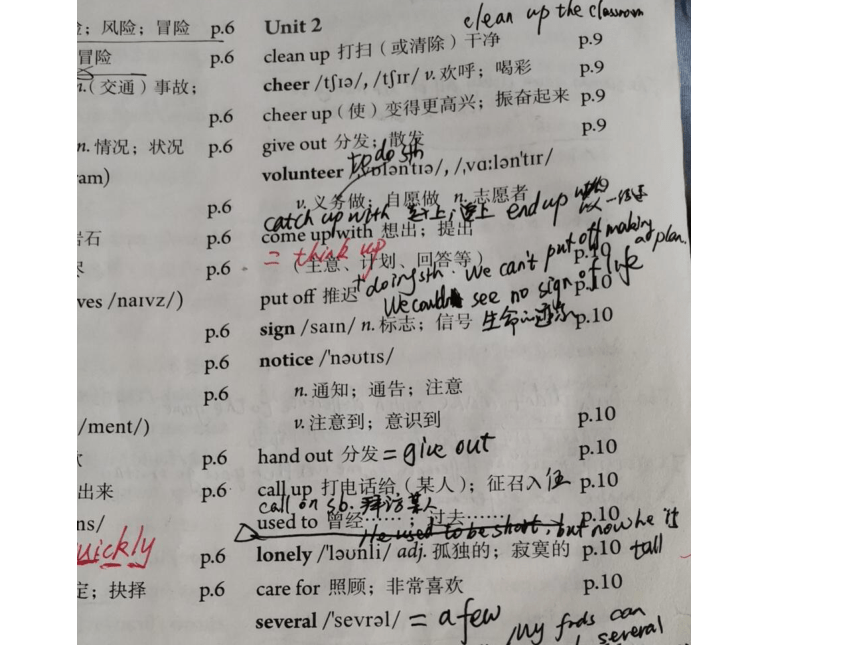 险；风险；冒险 p.6
冒险 p.6
n.（交通）事故；
p.6
n. 情况；状况 p.6
ram)
p.6
岩石 p.6
p.6
ves /naɪvz/)
p.6
p.6
p.6
/ment/)
p.6
出来 p.6
ns/
uickly
p.6
定；抉择 p.6
Unit 2
clean up the classroom
clean up 打扫（或清除）干净 p.9
cheer /tʃɪə/, /tʃɪr/ v. 欢呼；喝彩 p.9
cheer up（使）变得更高兴；振奋起来 p.9
give out 分发；散发 p.9
to do sth
volunteer /ˌvɒlənˈtɪə/, /ˌvɑːlənˈtɪr/
v. 义务做；自愿做 n. 志愿者
catch up with 赶上；追上 end up with 以一结束
come up with 想出；提出
= think up
（主意、计划、回答等） p.10
put off 推迟 p.10
+doing sth. We can't put off making a plan.
We couldn't see no sign of life
sign /saɪn/ n. 标志；信号 生命的迹象 p.10
notice /ˈnəʊtɪs/
n. 通知；通告；注意
v. 注意到；意识到 p.10
hand out 分发 = give out p.10
call up 打电话给（某人）；征召入伍 p.10
call on sb. 拜访某人
used to 曾经……；过去…… p.10
He used to be short, but now he is tall
lonely /ˈləʊnli/ adj. 孤独的；寂寞的 p.10
care for 照顾；非常喜欢 p.10
several /ˈsevrəl/ = a few
My can
several